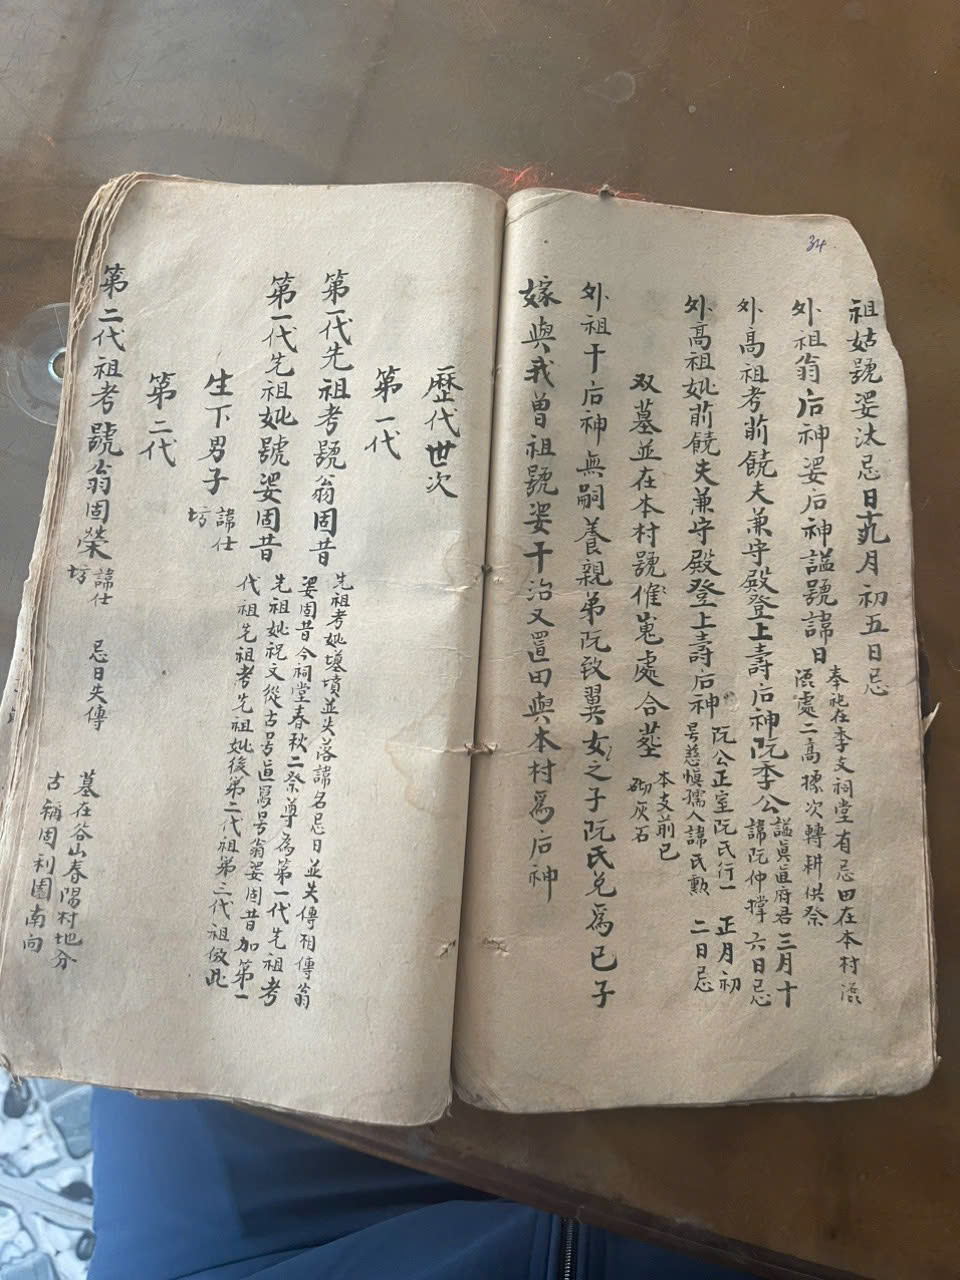 34
祖姑號婆汰忌日十九月初五日忌
外祖翁后神婆后神謚號諱日
奉祀在李支祠堂有忌田在本村
處二高據次轉耕供祭
外高祖考前饒夫兼守殿登上壽后神阮季公
謚真直府君
諱阮仲撑
三月十
六日忌
外高祖妣前饒夫兼守殿登上壽后神
阮公正室阮氏行一
号慈慎孺人諱氏勲
正月初
二日忌
双墓並在本村號催嵬處合墓
本支前已
砌灰石
外祖干后神無嗣養親弟阮致翼女之子阮氏兌爲已子
嫁與我曾祖號婆干治又置田與本村爲后神
歷代世次
第一代
第一代先祖考號翁固昔
先祖考妣墳墓並失落諱名忌日並失傳相傳翁
婆固昔今祠堂春秋二祭尊為第一代先祖考
第一代先祖妣號婆固昔
先祖妣祝文從古号直寫号翁婆固昔加第一
代祖先祖考先祖妣後第二代祖第三代祖倣此
生下男子
諱仕
坊
第二代
第二代祖考號翁固榮
諱仕
坊
忌日失傳
墓在谷山春陽村地分
古稱周利園南向